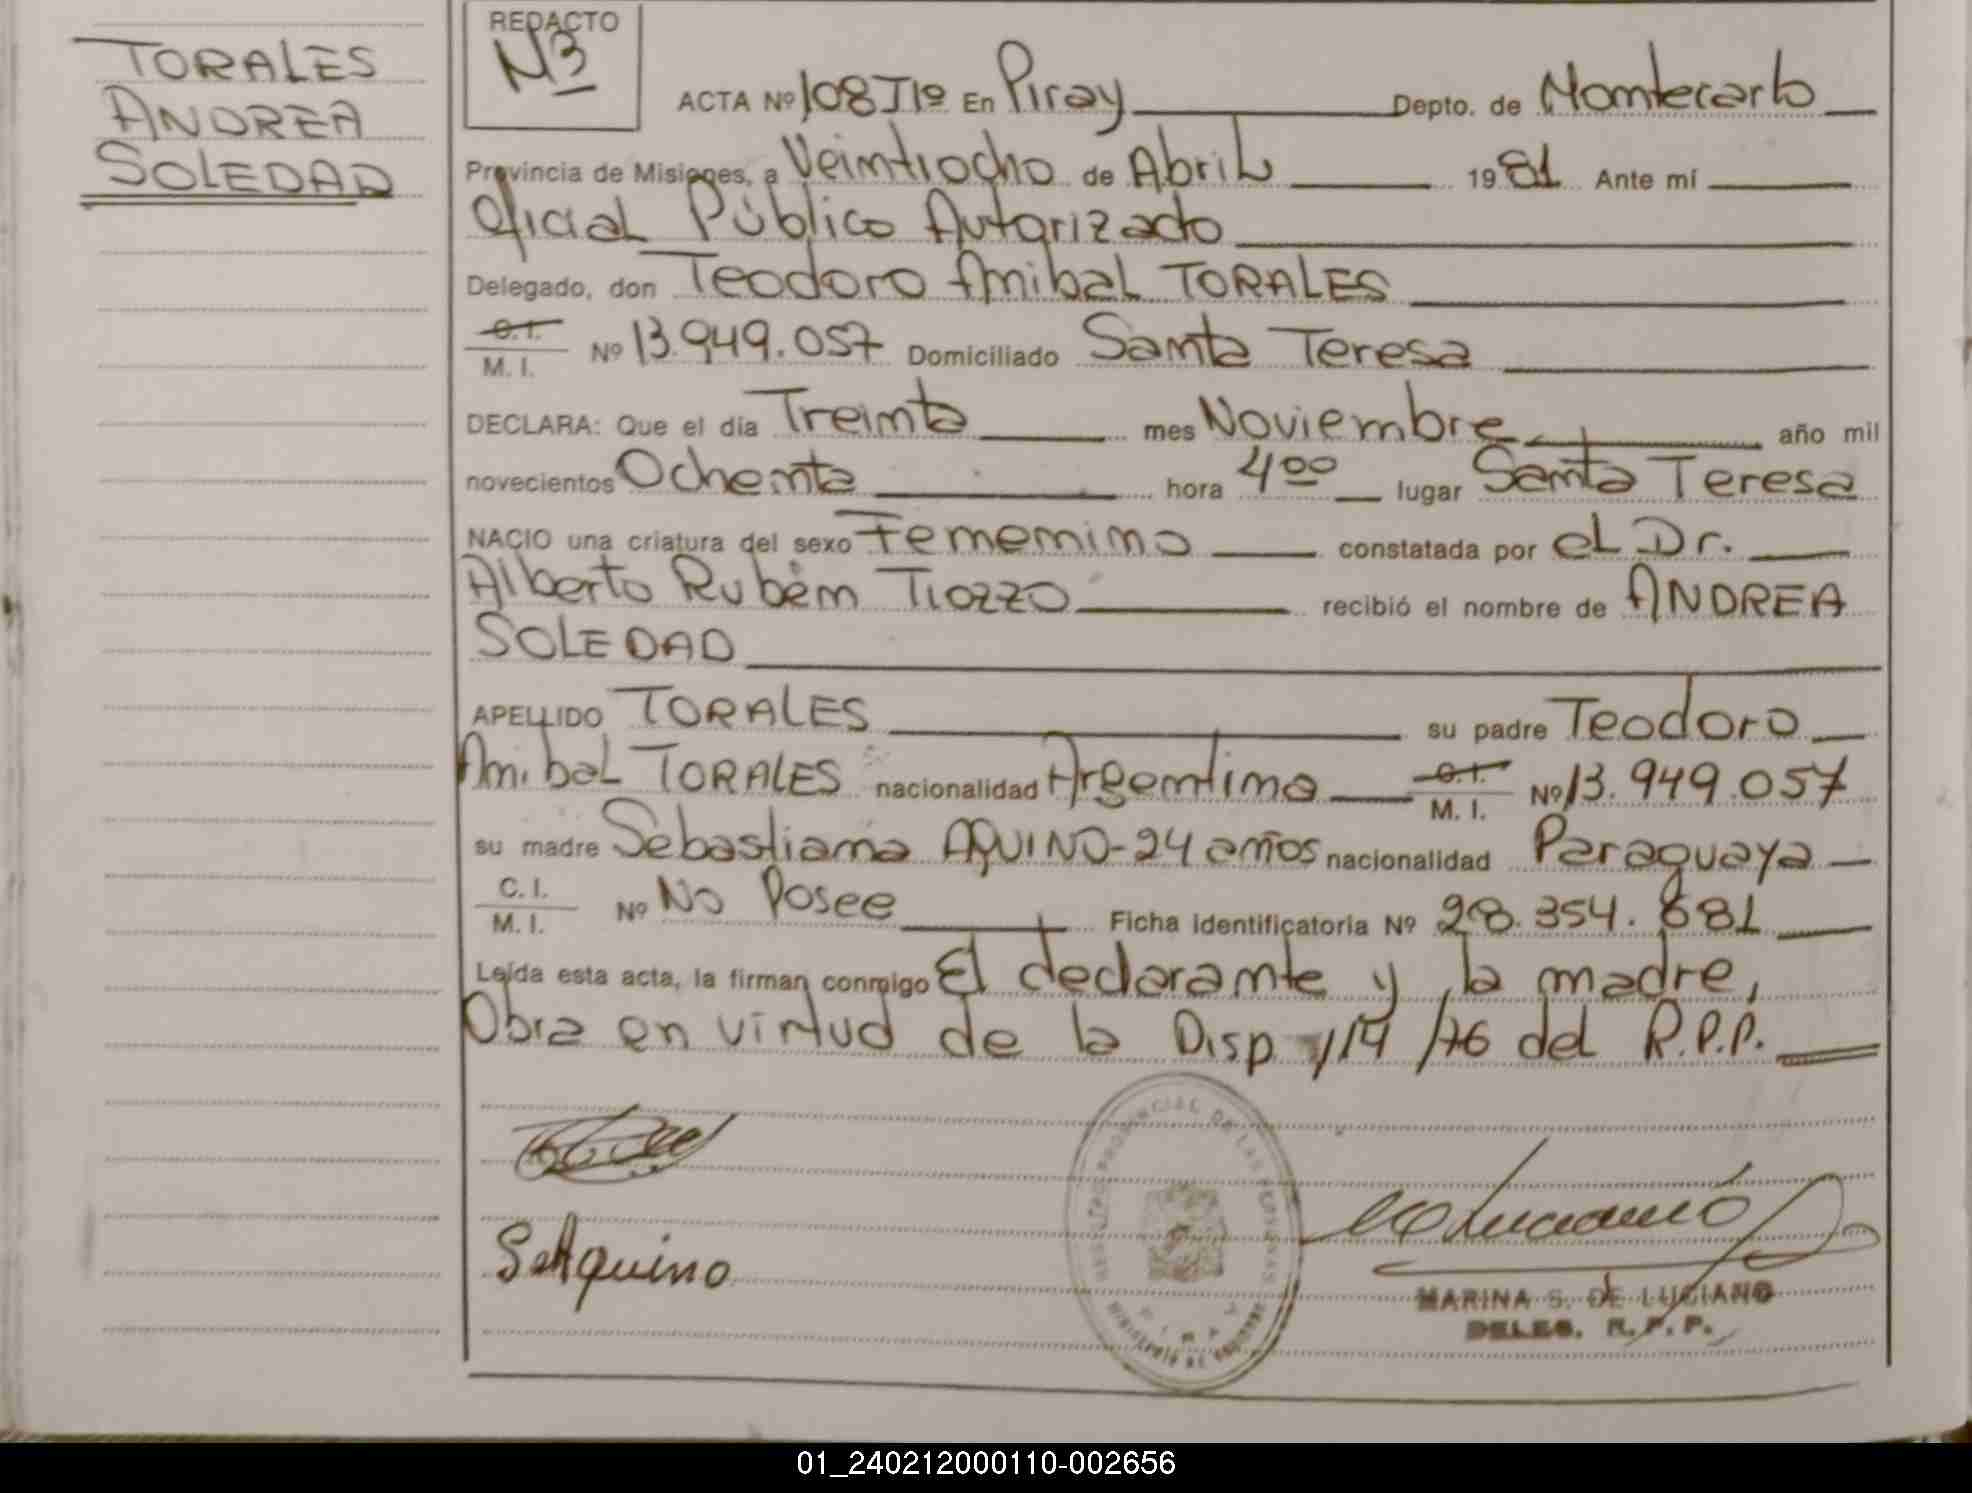 TORALES
ANDREA
SOLEDAD
REDACTO
N3
ACTA Nº 108 TIº En Piray Depto. de Montecarlo
Provincia de Misiones, a Veintiocho de Abril 1981 Ante mí
Oficial Público Autorizado
Delegado, don Teodoro Anibal TORALES
C.I.
M. I. Nº 13.949.057 Domiciliado Santa Teresa
DECLARA: Que el día Treinta mes Noviembre año mil
novecientos Ochenta hora 4ºº lugar Santa Teresa
NACIO una criatura del sexo Femenino constatada por el Dr.
Alberto Rubén Tiozzo recibió el nombre de ANDREA
SOLEDAD
APELLIDO TORALES su padre Teodoro
Anibal TORALES nacionalidad Argentina C.I. M. I. Nº 13.949.057
su madre Sebastiana AQUINO-24 años nacionalidad Paraguaya
C. I.
M. I. Nº No Posee Ficha identificatoria Nº 28.354.681
Leída esta acta, la firman conmigo El declarante y la madre,
Obra en virtud de la Disp 114/76 del R.P.P.
S Aquino
REGISTRO PROVINCIAL DE LAS PERSONAS
PIRAY
MINISTERIO DE GOBIERNO
MARINA S. DE LUCIANO
DELEG. R. P. P.
01_240212000110-002656